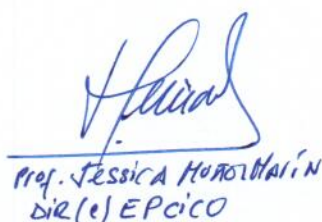 Prof. Jéssica Muñoz Marín
Dir (e) EPCICO